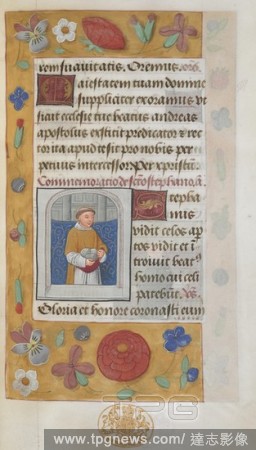 rem suavitatis. Oremus. oro.
Maiestatem tuam domine
suppliciter exoramus ut
sicut ecclesie tue beatus andreas
apostolus extitit predicator et rec
tor ita apud te sit pro nobis per
petuus intercessor Per xpristum
Commemoratio de scto stephano. a.
Stepha
nus
vidit celos ap
tos vidit et in
troivit beat9
homo cui celi
patebant. Vs.
Gloria et honore coronasti eum
TPG
www.tpgnews.com/達志影像